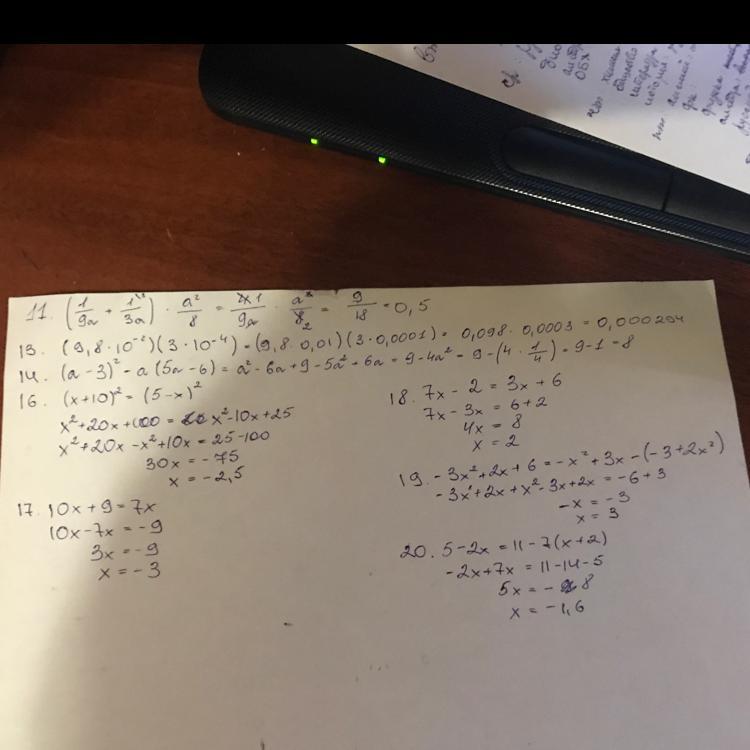 11. (1/9a + 1/3a) · a²/8 = 4·1/9a · a²/8 2 = 9/18 = 0,5
13. (9,8·10⁻²)(3·10⁻⁴) = (9,8·0,01)(3·0,0001) = 0,098·0,0003 = 0,000294
14. (a-3)² - a(5a-6) = a² - 6a + 9 - 5a² + 6a = 9 - 4a² = 9 - (4·1/4) = 9 - 1 = 8
16. (x+10)² = (5-x)²
x² + 20x + 100 = x² - 10x + 25
x² + 20x - x² + 10x = 25 - 100
30x = -75
x = -2,5
17. 10x + 9 = 7x
10x - 7x = -9
3x = -9
x = -3
18. 7x - 2 = 3x + 6
7x - 3x = 6 + 2
4x = 8
x = 2
19. -3x² + 2x + 6 = -x² + 3x - (-3 + 2x²)
-3x² + 2x + x² - 3x + 2x = -6 + 3
-x = -3
x = 3
20. 5 - 2x = 11 - 7(x+2)
-2x + 7x = 11 - 14 - 5
5x = -8
x = -1,6
ОБХ